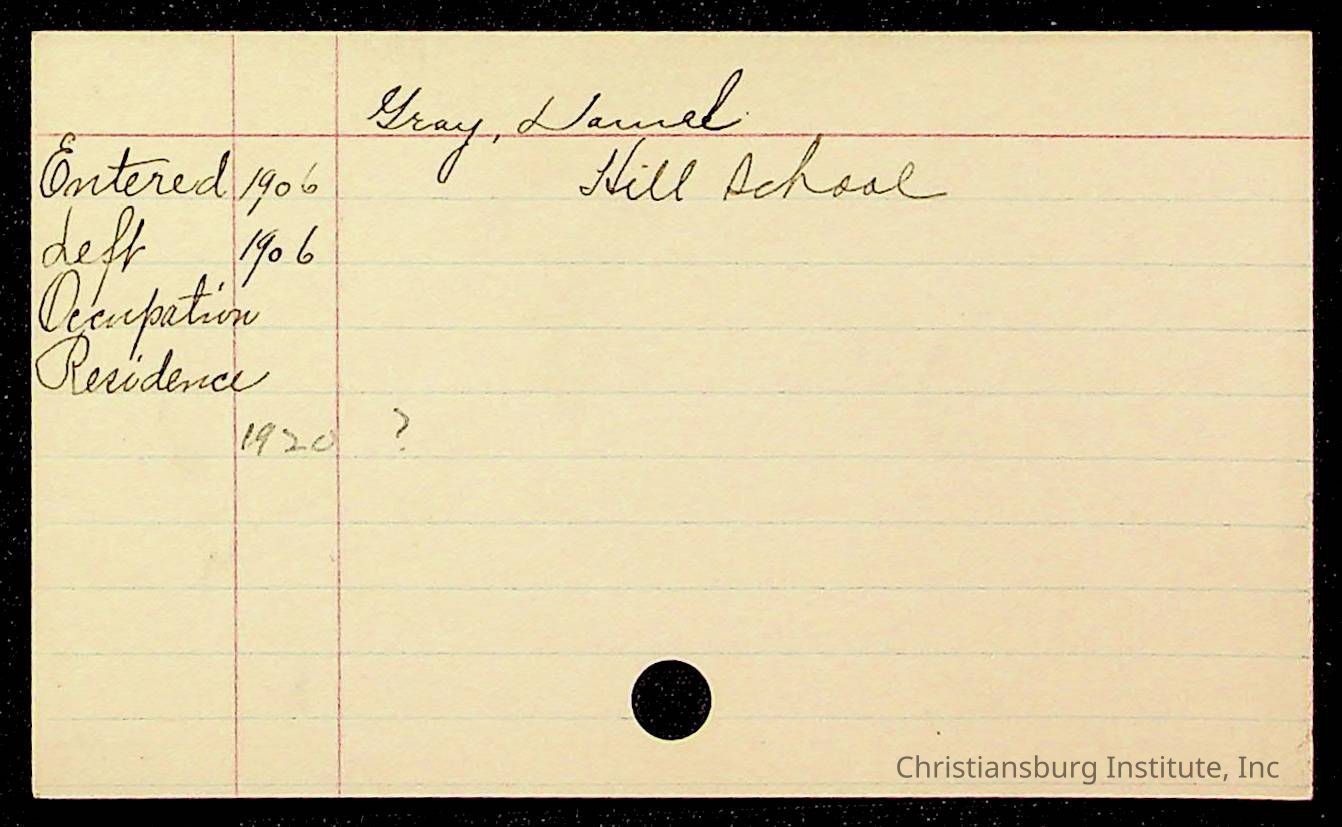 Gray, Daniel
Entered 1906 Hill School
Left 1906
Occupation
Residence
1920 ?
Christiansburg Institute, Inc